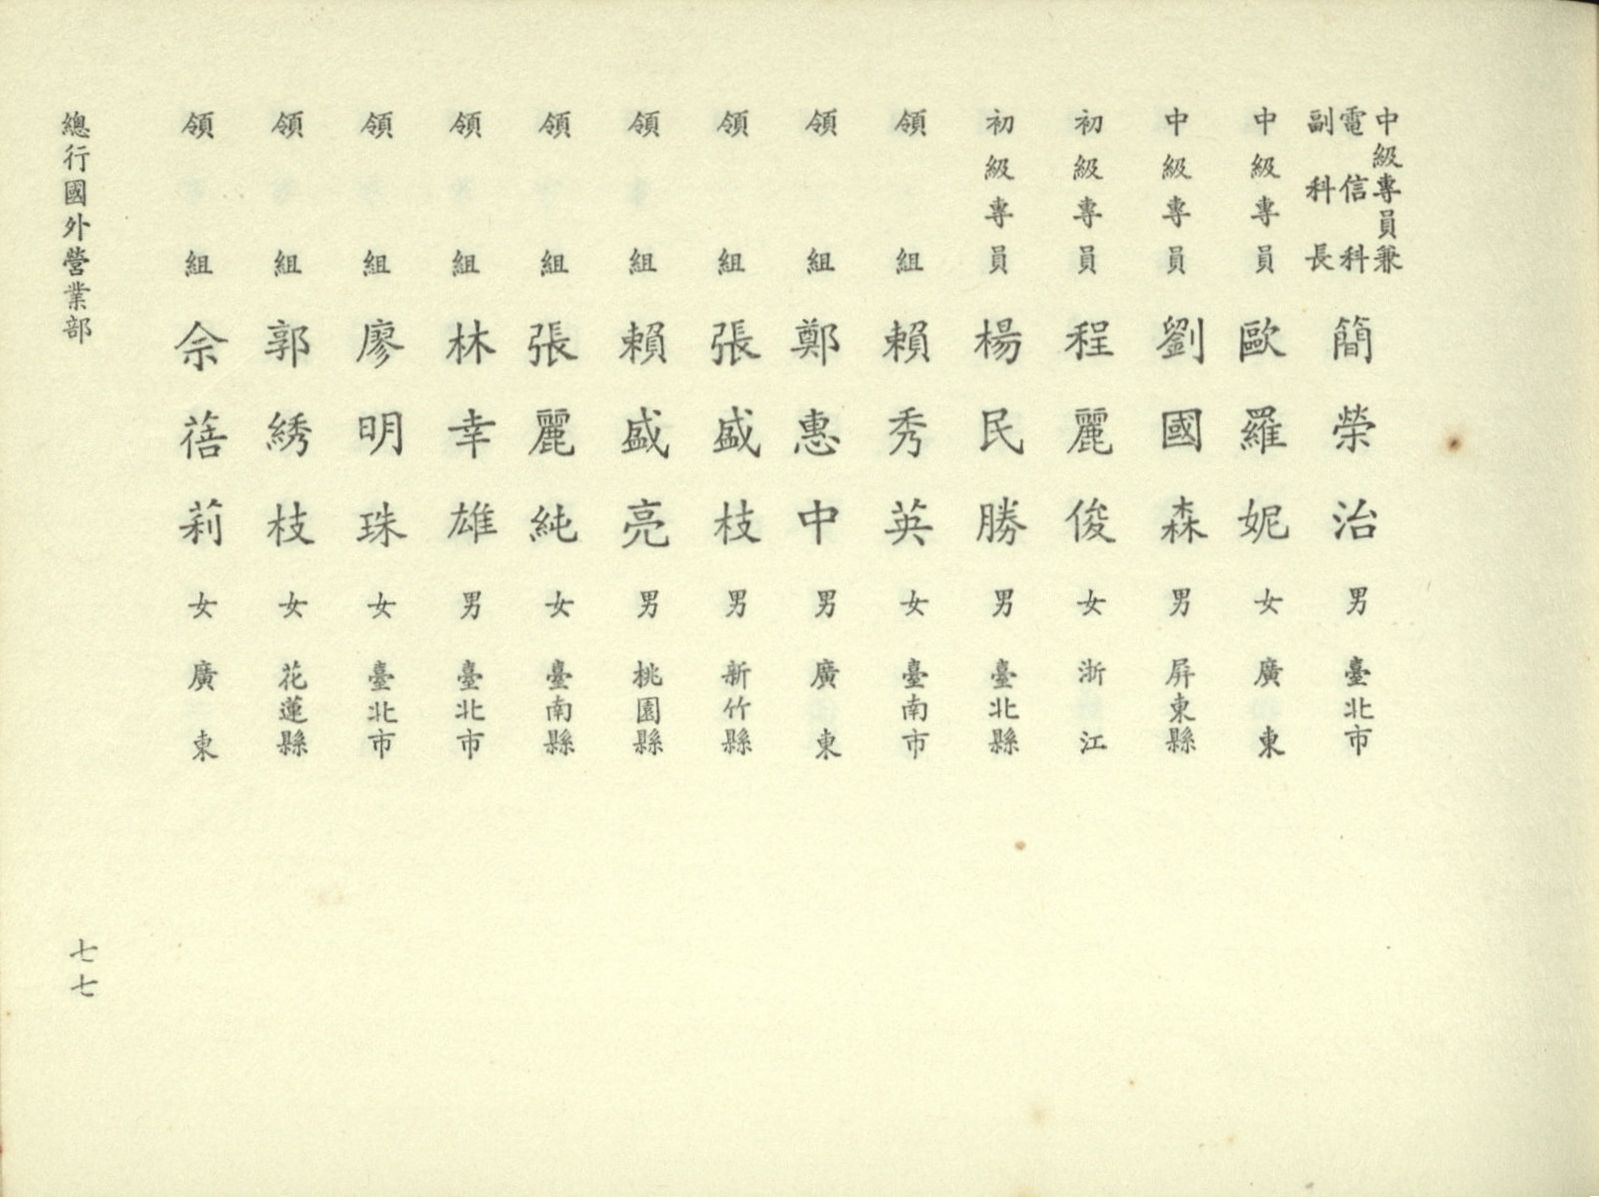 中級專員兼電信科副科長 簡榮治 男 臺北市
中級專員 歐羅妮 女 廣東
中級專員 劉國森 男 屏東縣
初級專員 程麗俊 女 浙江
初級專員 楊民勝 男 臺北縣
領組 賴秀英 女 臺南市
領組 鄭惠中 男 廣東
領組 張盛枝 男 新竹縣
領組 賴盛亮 男 桃園縣
領組 張麗純 女 臺南縣
領組 林幸雄 男 臺北市
領組 廖明珠 女 臺北市
領組 郭綉枝 女 花蓮縣
領組 佘蓓莉 女 廣東
總行國外營業部
七七